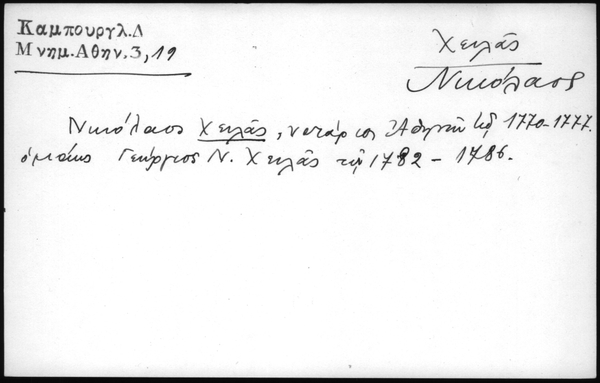 Καμπουργλ.Δ
Μνημ.Αθην.3,19
Χειλᾶς
Νικόλαος
Νικόλαος Χειλᾶς, νοτάριος Ἀθηνῶν 1770-1777.
ὁμοίως Γεώργιος Ν. Χειλᾶς τῷ 1782 - 1786.